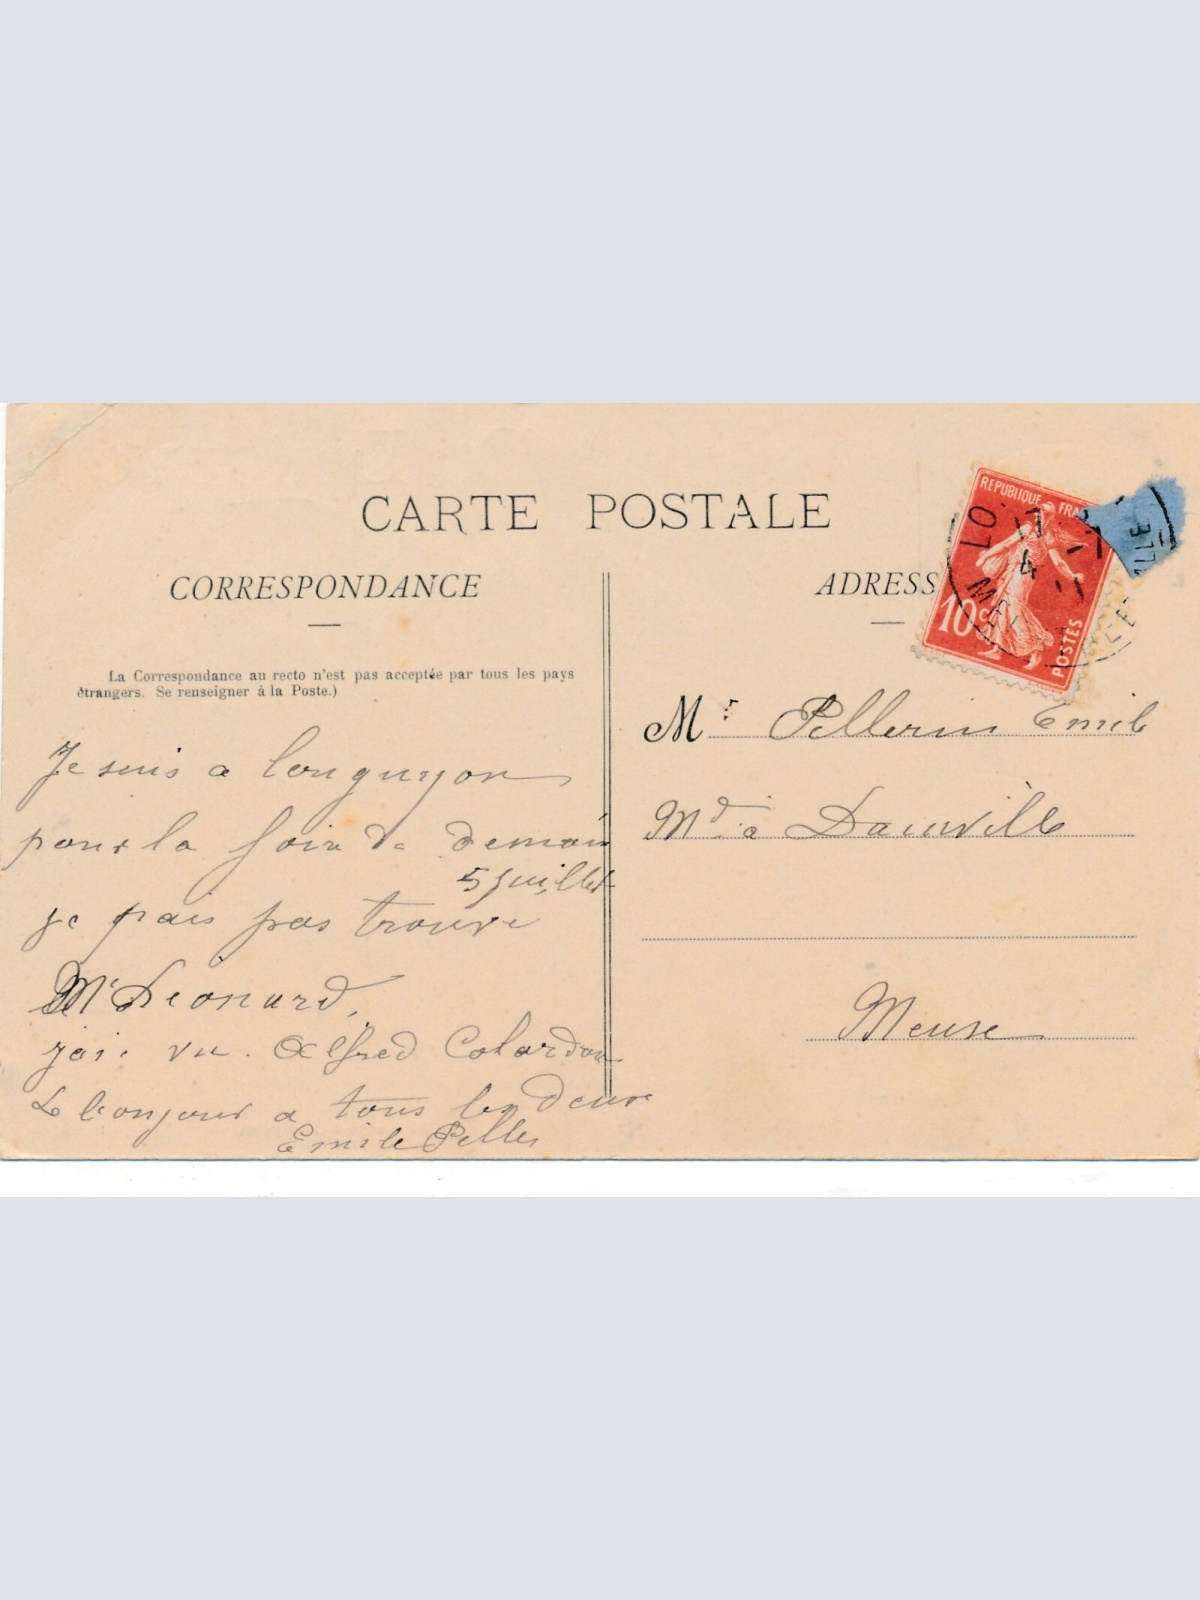 CARTE POSTALE
CORRESPONDANCE
La Correspondance au recto n'est pas acceptée par tous les pays
étrangers. Se renseigner à la Poste.)
Je suis a longuyon
pour la foire de demain
5 Juillet
je pas trouve
Mr Leonard,
jai vu Alfred Colardon
Le bonjour a tous les deux
Emile Peller
ADRESS
REPUBLIQUE FRA
10c
POSTES
17
4
LLE
Mr Pellerin Emile
Md à Dainville
Meuse